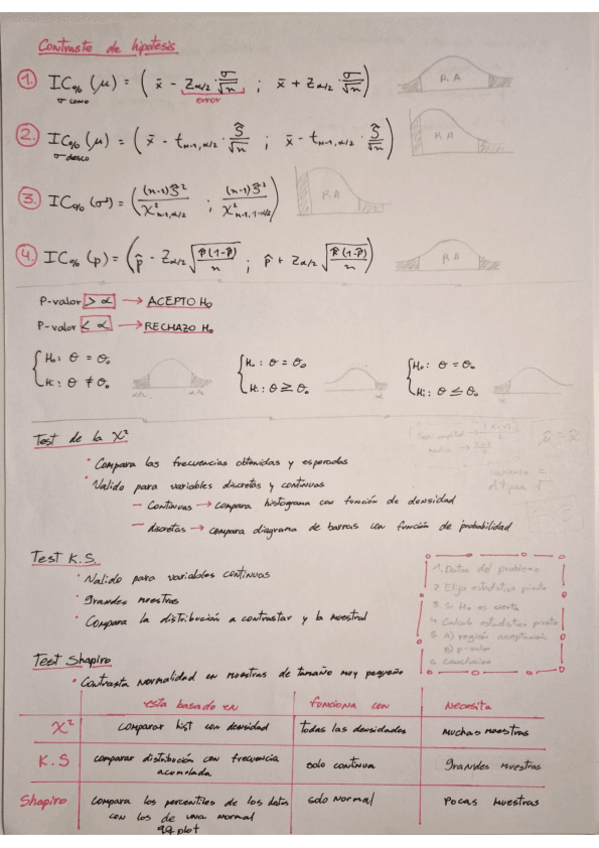 Contraste de hipotesis
1. IC% (μ) = ( x̄ - Zα/2 · σ/√n ; x̄ + Zα/2 · σ/√n ) R.A
σ cono error
2. IC% (μ) = ( x̄ - tn-1, α/2 · Ŝ/√n ; x̄ - tn-1, α/2 · Ŝ/√n ) R.A
σ desco
3. IC% (σ²) = ( (n-1)Ŝ² / χ²n-1, α/2 ; (n-1)Ŝ² / χ²n-1, 1-α/2 ) R.A
4. IC% (p) = ( p̂ - Zα/2 √(p̂(1-p̂)/n) ; p̂ + Zα/2 √(p̂(1-p̂)/n) ) R.A
P-valor > α → ACEPTO H₀
P-valor < α → RECHAZO H₀
H₀: θ = θ₀ H₀: θ = θ₀ H₀: θ = θ₀
H₁: θ ≠ θ₀ H₁: θ ≥ θ₀ H₁: θ ≤ θ₀
α/2 α/2 α α
Test de la χ²
• Compara las frecuencias obtenidas y esperadas
• Valido para variables discretas y continuas
— Continuas → compara histograma con función de densidad
— discretas → compara diagrama de barras con función de probabilidad
Test K.S.
• Valido para variables continuas
• grandes muestras
• Compara la distribución a contrastar y la muestral
1. Datos del problema
2 Elijo estadistico pivote
3. Si H₀ es cierta
4 Calculo estadistico pivote
5 a) región aceptación
b) p-valor
6. conclusion
Test Shapiro
• Contrasta normalidad en muestras de tamaño muy pequeño
esta basado en funciona con necesita
χ² comparar hist con densidad todas las densidades muchas muestras
K.S comparar distribución con frecuencia acumulada solo continua grandes muestras
Shapiro compara los percentiles de los datos con los de una normal solo normal pocas muestras
qq plot